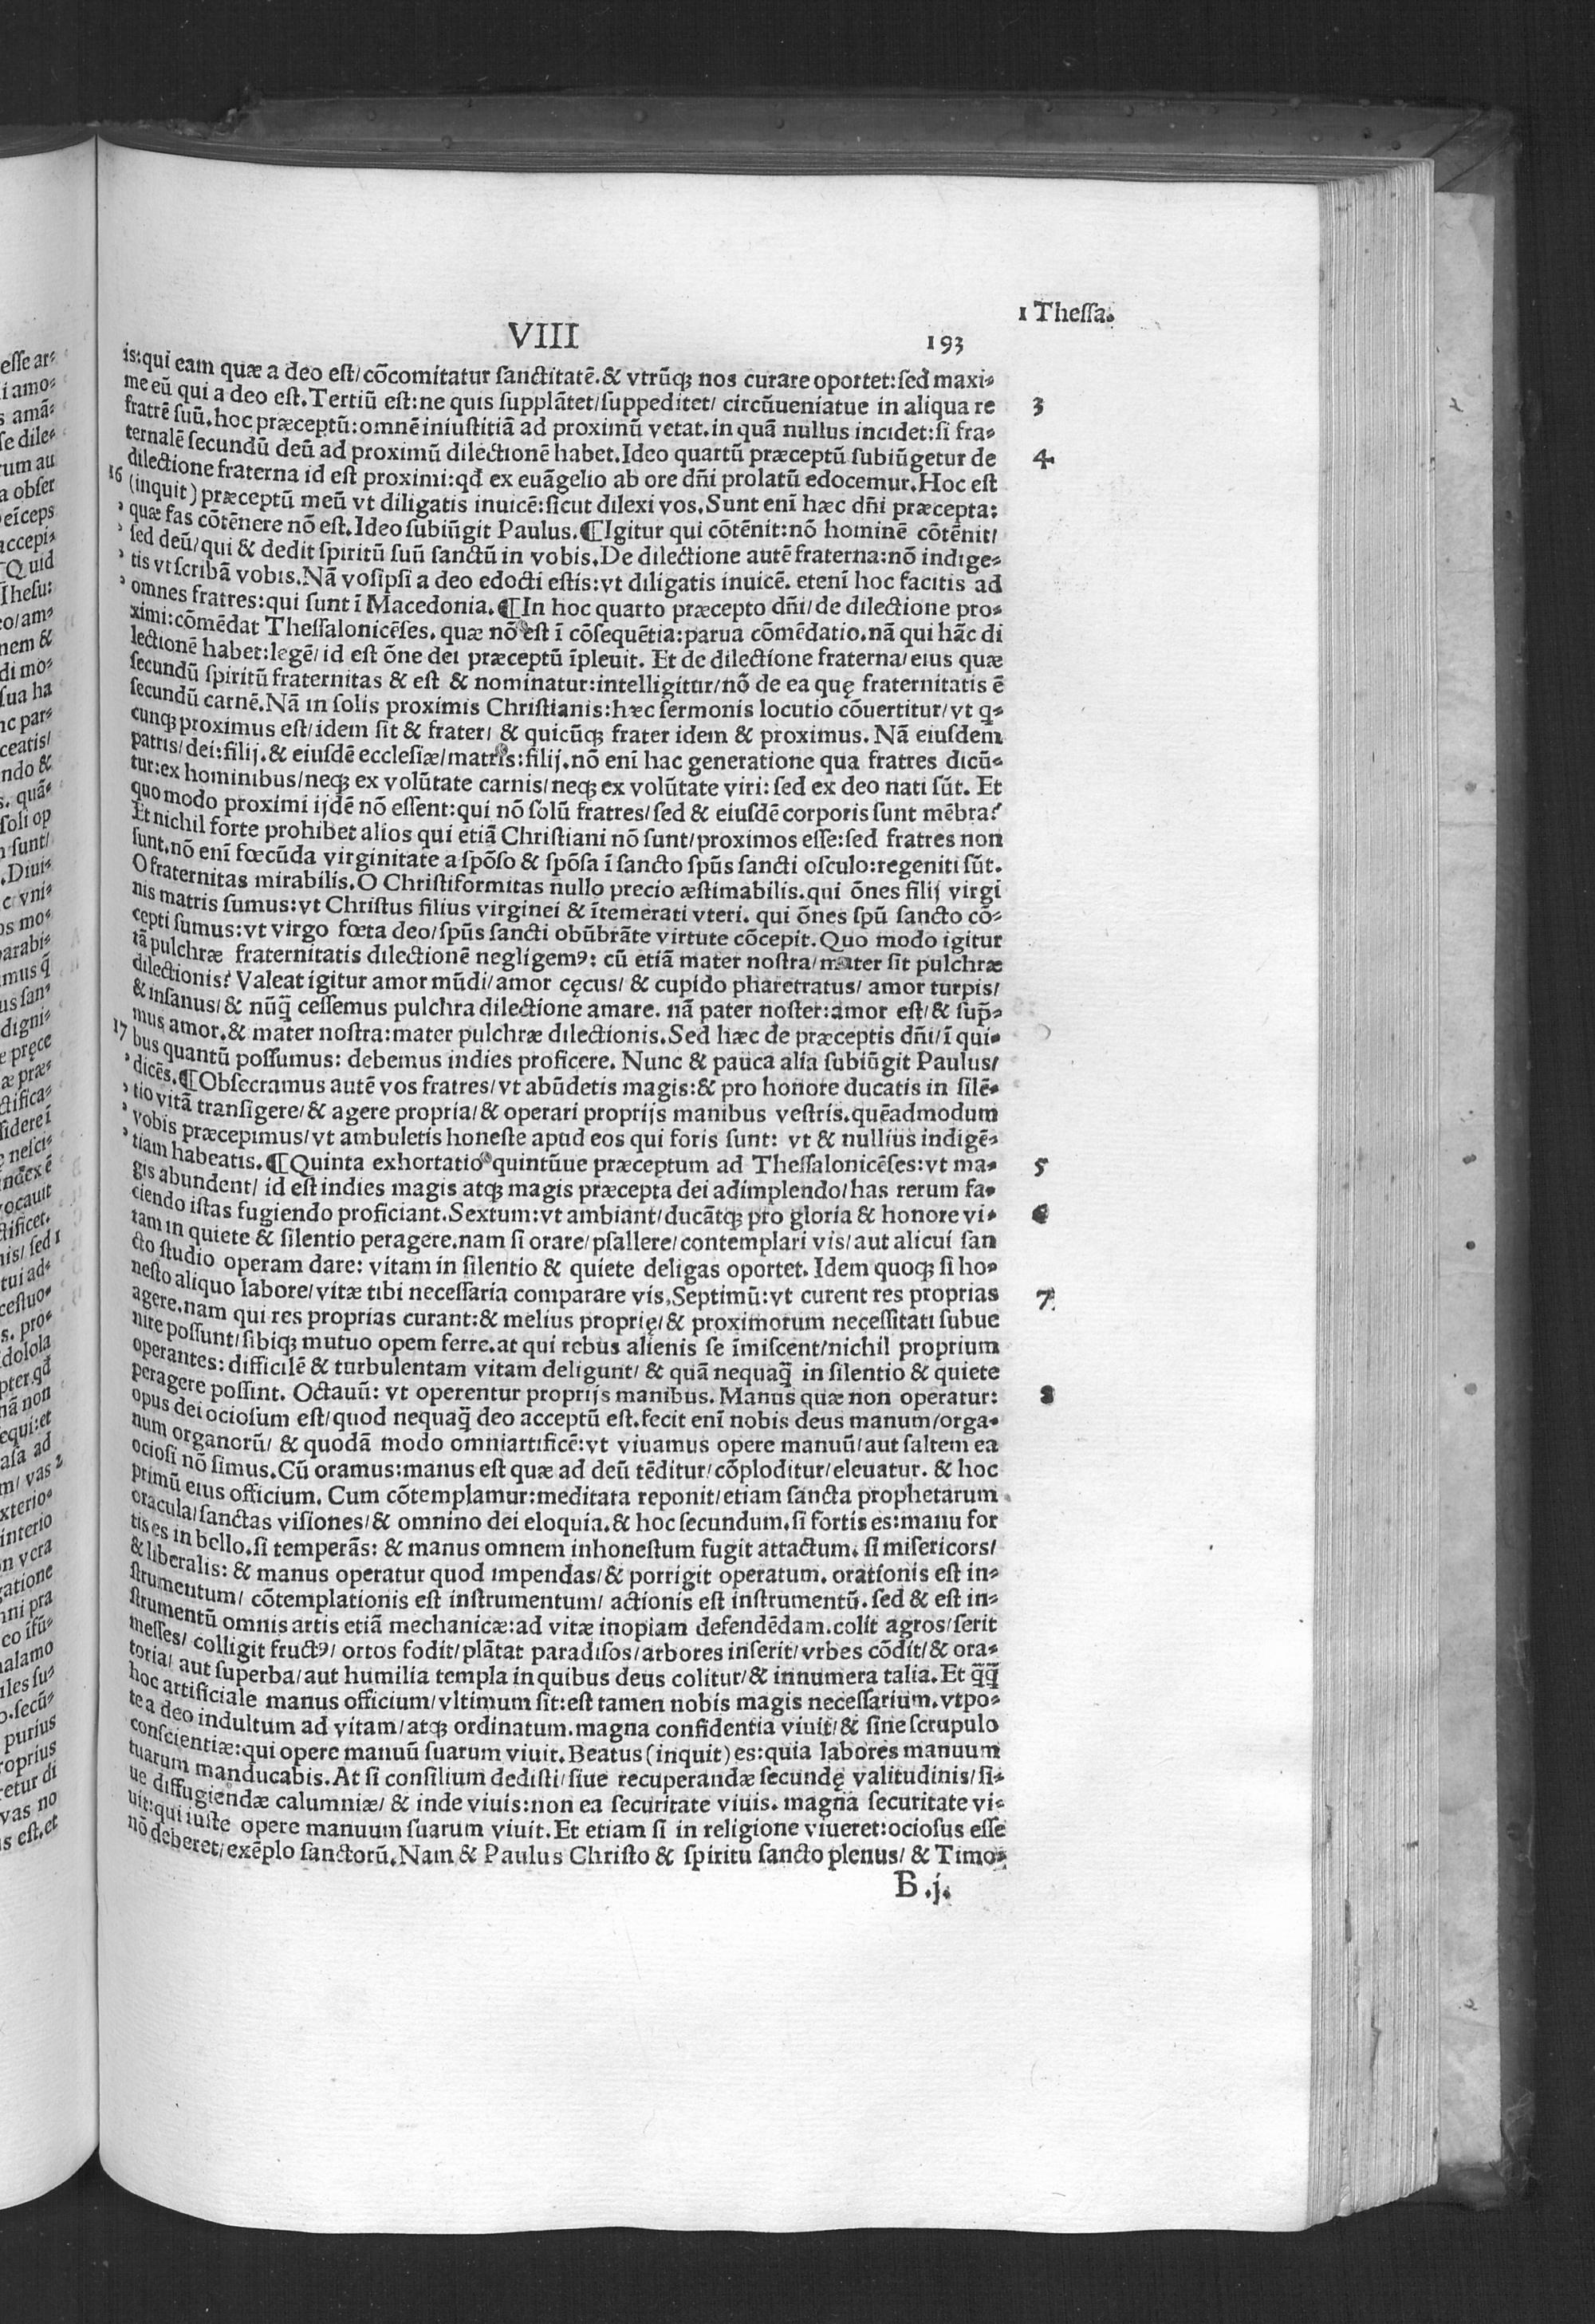 1 Thessa.
VIII
193
is:qui eam quæ a deo est/ cõcomitatur sanctitatẽ.& vtrũq; nos curare oportet:sed maxi-
me eũ qui a deo est.Tertiũ est:ne quis supplãtet/suppeditet/ circũueniatue in aliqua re
3
fratrẽ suũ.hoc præceptũ:omnẽ iniustitiã ad proximũ vetat.in quã nullus incidet:si fra-
ternalẽ secundũ deũ ad proximũ dilectionẽ habet.Ideo quartũ præceptũ subiũgetur de
4
dilectione fraterna id est proximi:qđ ex euãgelio ab ore dñi prolatũ edocemur.Hoc est
16 (inquit) præceptũ meũ vt diligatis inuicẽ:sicut dilexi vos.Sunt enĩ hæc dñi præcepta:
quæ fas cõtẽnere nõ est.Ideo subiũgit Paulus.¶Igitur qui cõtẽnit:nõ hominẽ cõtẽnit/
sed deũ/qui & dedit spiritũ suũ sanctũ in vobis.De dilectione autẽ fraterna:nõ indige-
tis vt scribã vobis.Nã vosipsi a deo edocti estis:vt diligatis inuicẽ. etenĩ hoc facitis ad
omnes fratres:qui sunt ĩ Macedonia.¶In hoc quarto præcepto dñi/de dilectione pro-
ximi:cõmẽdat Thessalonicẽses. quæ nõ est ĩ cõsequẽtia:parua cõmẽdatio.nã qui hãc di
lectionẽ habet:legẽ/ id est õne dei præceptũ ĩpleuit. Et de dilectione fraterna/eius quæ
secundũ spiritũ fraternitas & est & nominatur:intelligitur/nõ de ea quę fraternitatis ẽ
secundũ carnẽ.Nã in solis proximis Christianis:hæc sermonis locutio cõuertitur/vt q-
cunq; proximus est/idem sit & frater/ & quicũq; frater idem & proximus. Nã eiusdem
patris/dei:filij.& eiusdẽ ecclesiæ/matris:filij.nõ enĩ hac generatione qua fratres dicũ-
tur:ex hominibus/neq; ex volũtate carnis/neq; ex volũtate viri: sed ex deo nati sũt. Et
quo modo proximi ijdẽ nõ essent:qui nõ solũ fratres/sed & eiusdẽ corporis sunt mẽbra?
Et nichil forte prohibet alios qui etiã Christiani nõ sunt/proximos esse:sed fratres non
sunt.nõ enĩ fœcũda virginitate a spõso & spõsa ĩ sancto spũs sancti osculo:regeniti sũt.
O fraternitas mirabilis.O Christiformitas nullo precio æstimabilis.qui õnes filij virgi
nis matris sumus:vt Christus filius virginei & ĩtemerati vteri. qui õnes spũ sancto cõ-
cepti sumus:vt virgo fœta deo/spũs sancti obũbrãte virtute cõcepit.Quo modo igitur
tã pulchræ fraternitatis dilectionẽ negligemꝯ: cũ etiã mater nostra/mater sit pulchræ
dilectionis? Valeat igitur amor mũdi/amor cęcus/ & cupido pharetratus/ amor turpis/
& insanus/& nũq̃ cessemus pulchra dilectione amare. nã pater noster:amor est/& sup̃-
mus amor.& mater nostra:mater pulchræ dilectionis.Sed hæc de præceptis dñi/ĩ qui-
17 bus quantũ possumus: debemus indies proficere. Nunc & pauca alia subiũgit Paulus/
dicẽs.¶Obsecramus autẽ vos fratres/vt abũdetis magis:& pro honore ducatis in silẽ-
tio vitã transigere/& agere propria/& operari proprijs manibus vestris.quẽadmodum
vobis præcepimus/vt ambuletis honeste apud eos qui foris sunt: vt & nullius indigẽ-
tiam habeatis.¶Quinta exhortatio quintũue præceptum ad Thessalonicẽses:vt ma-
5
gis abundent/ id est indies magis atq; magis præcepta dei adimplendo/has rerum fa-
ciendo istas fugiendo proficiant.Sextum:vt ambiant/ducãtq; pro gloria & honore vi-
6
tam in quiete & silentio peragere.nam si orare/psallere/contemplari vis/aut alicui san
cto studio operam dare: vitam in silentio & quiete deligas oportet. Idem quoq; si ho-
nesto aliquo labore/vitæ tibi necessaria comparare vis.Septimũ:vt curent res proprias
7
agere.nam qui res proprias curant:& melius proprię/& proximorum necessitati subue
nire possunt/sibiq; mutuo opem ferre.at qui rebus alienis se ĩmiscent/nichil proprium
operantes: difficilẽ & turbulentam vitam deligunt/ & quã nequaq̃ in silentio & quiete
peragere possint. Octauũ: vt operentur proprijs manibus. Manus quæ non operatur:
8
opus dei ociosum est/quod nequaq̃ deo acceptũ est.fecit enĩ nobis deus manum/orga-
num organorũ/ & quodã modo omniartificẽ:vt viuamus opere manuũ/aut saltem ea
ociosi nõ simus.Cũ oramus:manus est quæ ad deũ tẽditur/cõploditur/eleuatur. & hoc
primũ eius officium. Cum cõtemplamur:meditata reponit/etiam sancta prophetarum
oracula/sanctas visiones/& omnino dei eloquia.& hoc secundum.si fortis es:manu for
tis es in bello.si temperãs: & manus omnem inhonestum fugit attactum. si misericors/
& liberalis: & manus operatur quod impendas/& porrigit operatum. orationis est in-
strumentum/ cõtemplationis est instrumentum/ actionis est instrumentũ. sed & est in-
strumentũ omnis artis etiã mechanicæ:ad vitæ inopiam defendẽdam.colit agros/serit
messes/ colligit fructꝯ/ ortos fodit/plãtat paradisos/arbores inserit/vrbes cõdit/& ora-
toria/ aut superba/aut humilia templa in quibus deus colitur/& innumera talia.Et q̃q̃
hoc artificiale manus officium/vltimum sit:est tamen nobis magis necessarium.vtpo-
te a deo indultum ad vitam/atq; ordinatum.magna confidentia viuit/& sine scrupulo
conscientiæ:qui opere manuũ suarum viuit.Beatus (inquit) es:quia labores manuum
tuarum manducabis.At si consilium dedisti/siue recuperandæ secundę valitudinis/si-
ue diffugiendæ calumniæ/ & inde viuis:non ea securitate viuis. magna securitate vi-
uit:qui iuste opere manuum suarum viuit.Et etiam si in religione viueret:ociosus esse
nõ deberet/exẽplo sanctorũ.Nam & Paulus Christo & spiritu sancto plenus/ & Timo-
B.j.